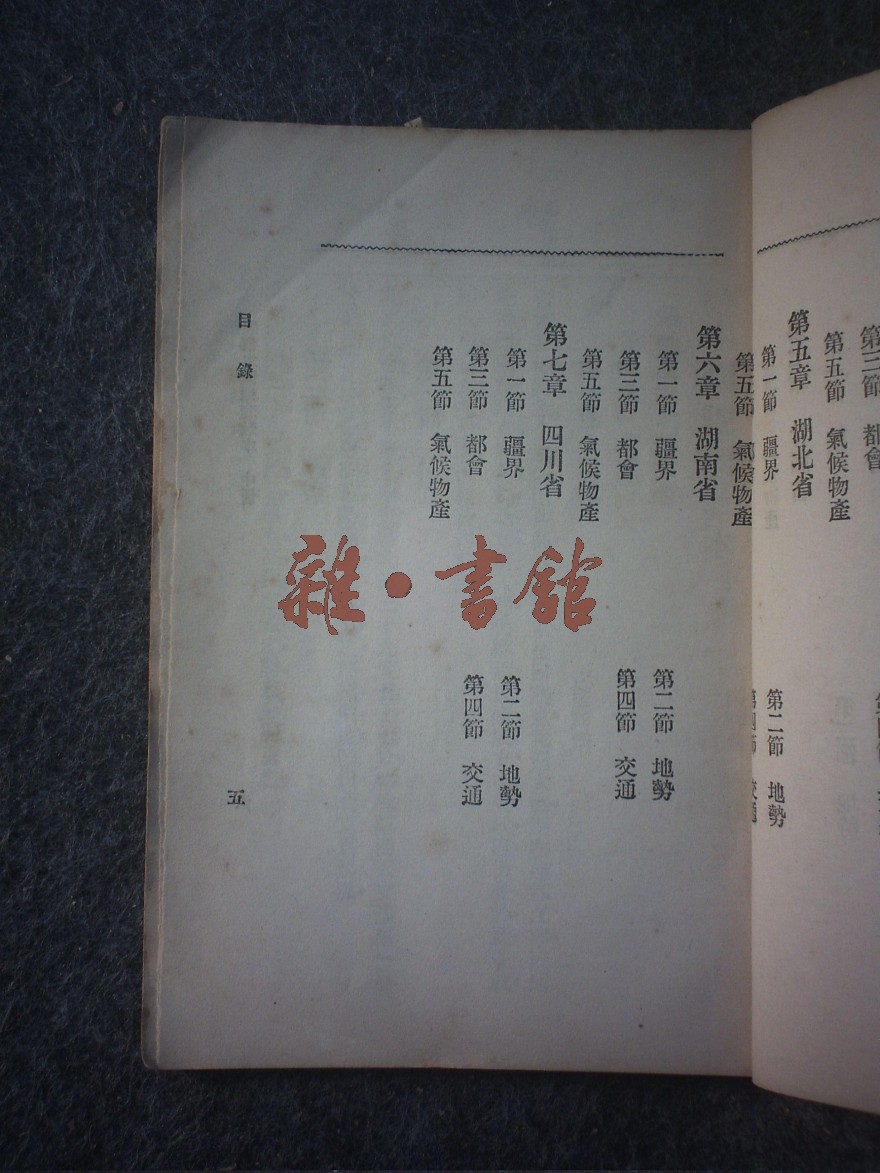 第三節 都會
第五節 氣候物產
第五章 湖北省
第一節 疆界 第二節 地勢
第五節 氣候物產
第六章 湖南省
第一節 疆界 第二節 地勢
第三節 都會 第四節 交通
第五節 氣候物產
第七章 四川省
第一節 疆界 第二節 地勢
第三節 都會 第四節 交通
第五節 氣候物產
目錄 五
雜·書館